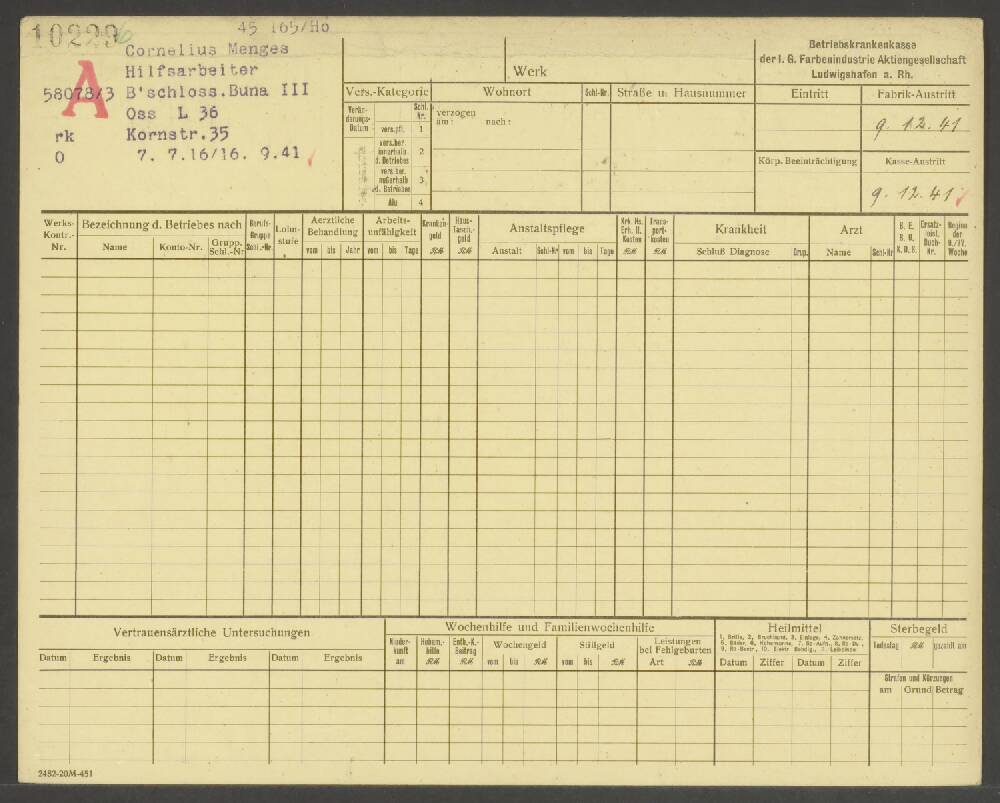 45 165/Hö
Cornelius Menges
Hilfsarbeiter
58078/3 B'schloss.Buna III
A
Oss L 36
rk Kornstr.35
O 7. 7.16/16. 9.41
Werk
Betriebskrankenkasse
der I. G. Farbenindustrie Aktiengesellschaft
Ludwigshafen a. Rh.
Vers.-Kategorie Wohnort Schl-Nr. Straße u. Hausnummer Eintritt Fabrik-Austritt
Verän-
derungs-
Datum
Schl.
Nr.
vers.pfl. 1
vers.ber.
innerhalb
d. Betriebes 2
vers.ber.
außerhalb
d. Betriebes 3
Alu 4
verzogen
am: nach:
9. 12. 41
Körp. Beeinträchtigung Kasse-Austritt
9. 12. 41
Werks-
Kontr.-
Nr.
Bezeichnung d. Betriebes nach
Name Konto-Nr. Grupp.
Schl.-Nr
Berufs-
Gruppe
Schl.-Nr.
Lohn-
stufe
Aerztliche
Behandlung
vom bis Jahr
Arbeits-
unfähigkeit
vom bis Tage
Kranken-
geld
RM
Haus-
Tasch.-
geld
RM
Anstaltspflege
Anstalt Schl-Nr vom bis Tage
Krk. Hs.
Erh. H.
Kosten
RM
Trans-
port-
kosten
RM
Krankheit
Schluß Diagnose Grup.
Arzt
Name Schl-Nr
Ersatz-
leist.
Buch-
Nr.
Beginn
der
Woche
Vertrauensärztliche Untersuchungen
Datum Ergebnis Datum Ergebnis Datum Ergebnis
Wochenhilfe und Familienwochenhilfe
Nieder-
kunft
am
Hebam.-
hilfe
RM
Entb.-K.-
Beitrag
RM
Wochengeld
vom bis RM
Stillgeld
vom bis RM
Leistungen
bei Fehlgeburten
Art RM
Heilmittel
1. Brille, 2. Bruchband, 3. Einlage, 4. Zahnersatz,
Datum Ziffer Datum Ziffer
Sterbegeld
Todestag RM gezahlt am
Strafen und Kürzungen
am Grund Betrag
2482-20M-451